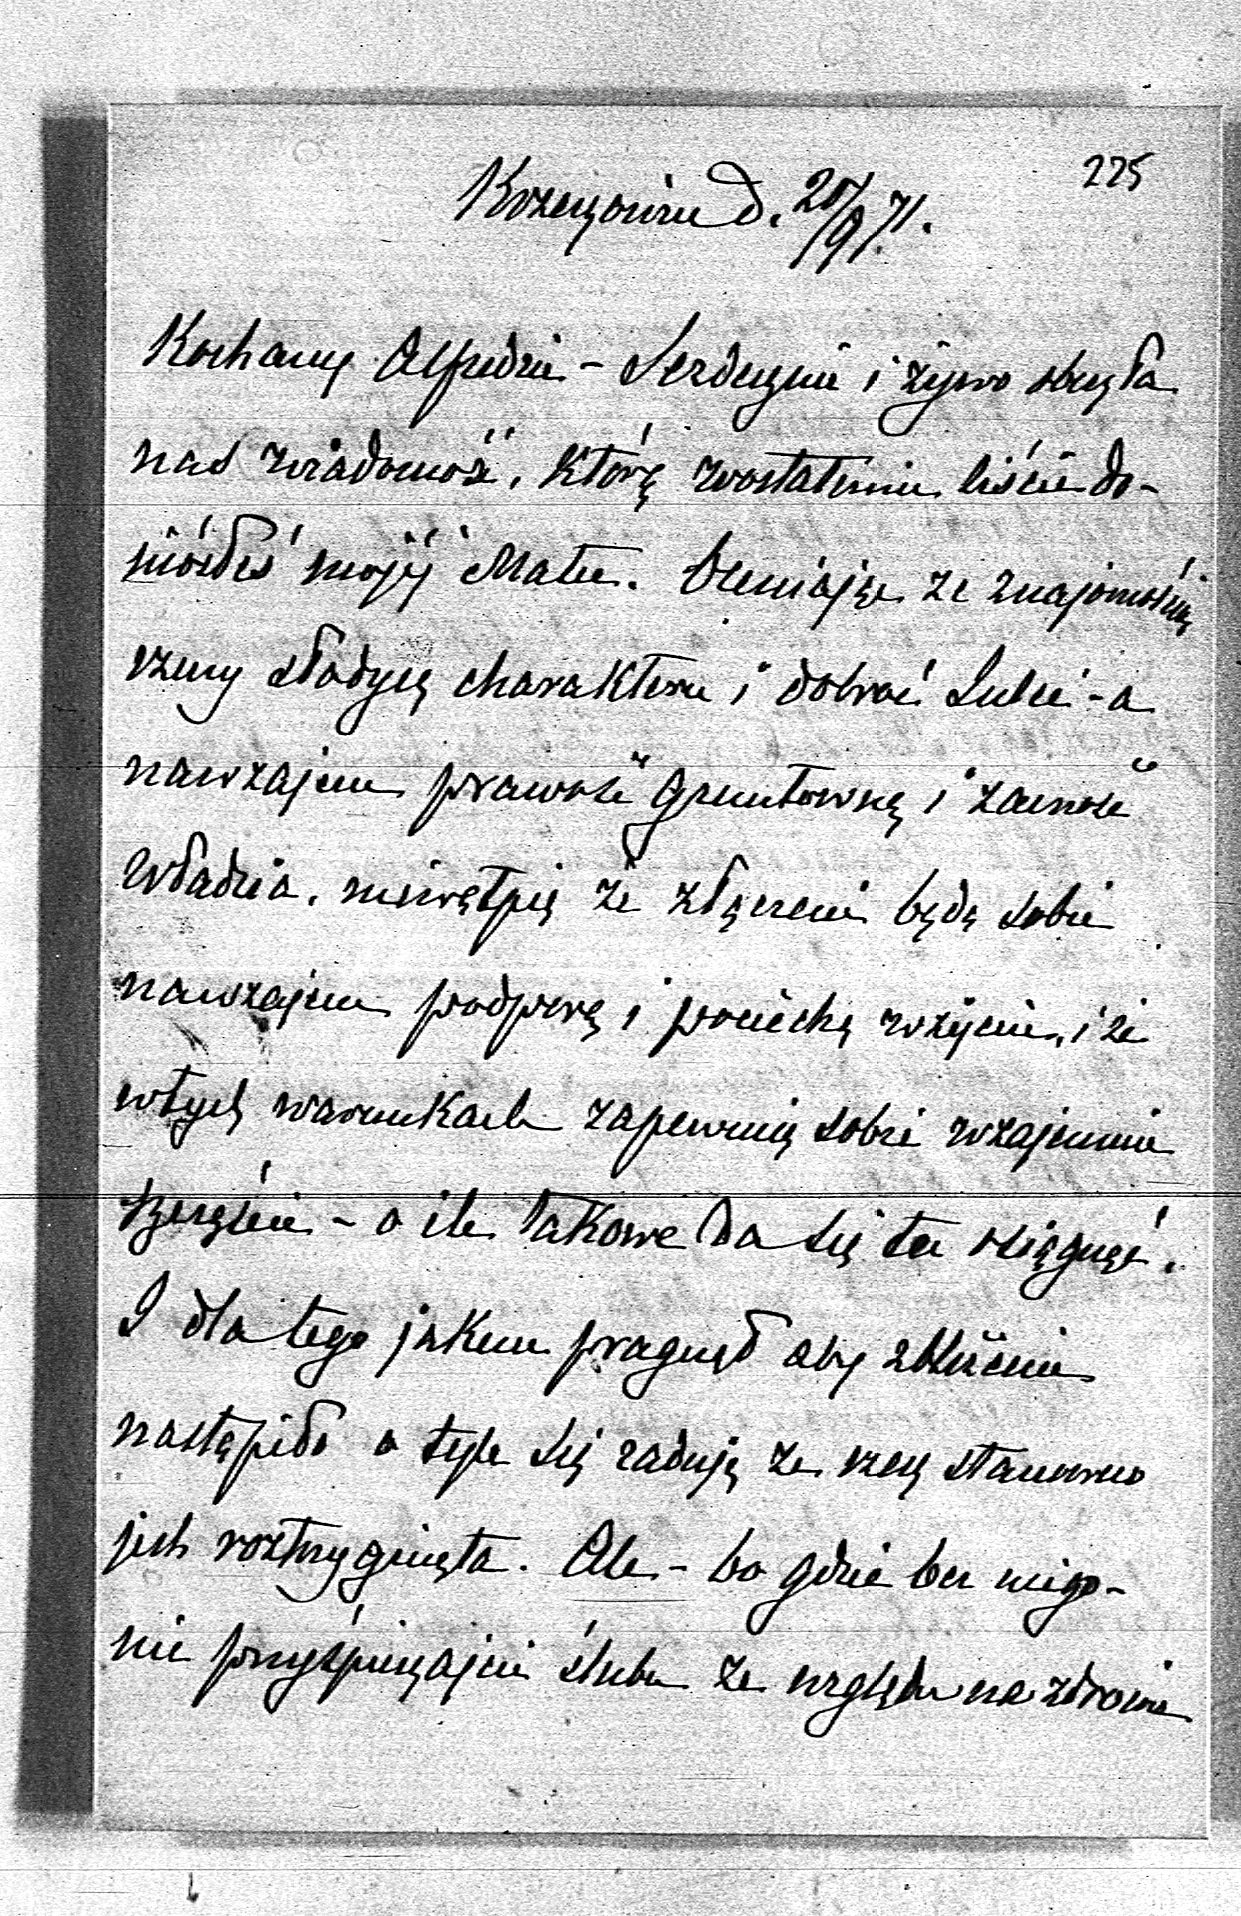 225
Krzeszowice d. 20/9 71.
Kochany Alfredzie – Serdecznie i żywo
nas wiadomość, którą w ostatnim liście do-
niósłeś mojéj Matce. Oceniając ze znajomością
rzeczy słodycz charakteru i dobroć – a
nawzajem prawość gruntowną i zacność
Władzia, niewątpię że złączeni będą sobie
nawzajem podporą i pociechą w życiu, i że
w tych warunkach zapewnią sobie wzajemnie
szczęście – o ile takowe da się tu osięgnąć.
I dla tego jakem pragnął aby zbliżenie
nastąpiło o tyle się raduję że rzecz stanowczo
jest roztrzygnięta. Ale – bo gdzie bez niego –
nie przyśpieszajcie ślubu ze względu na zdrowie